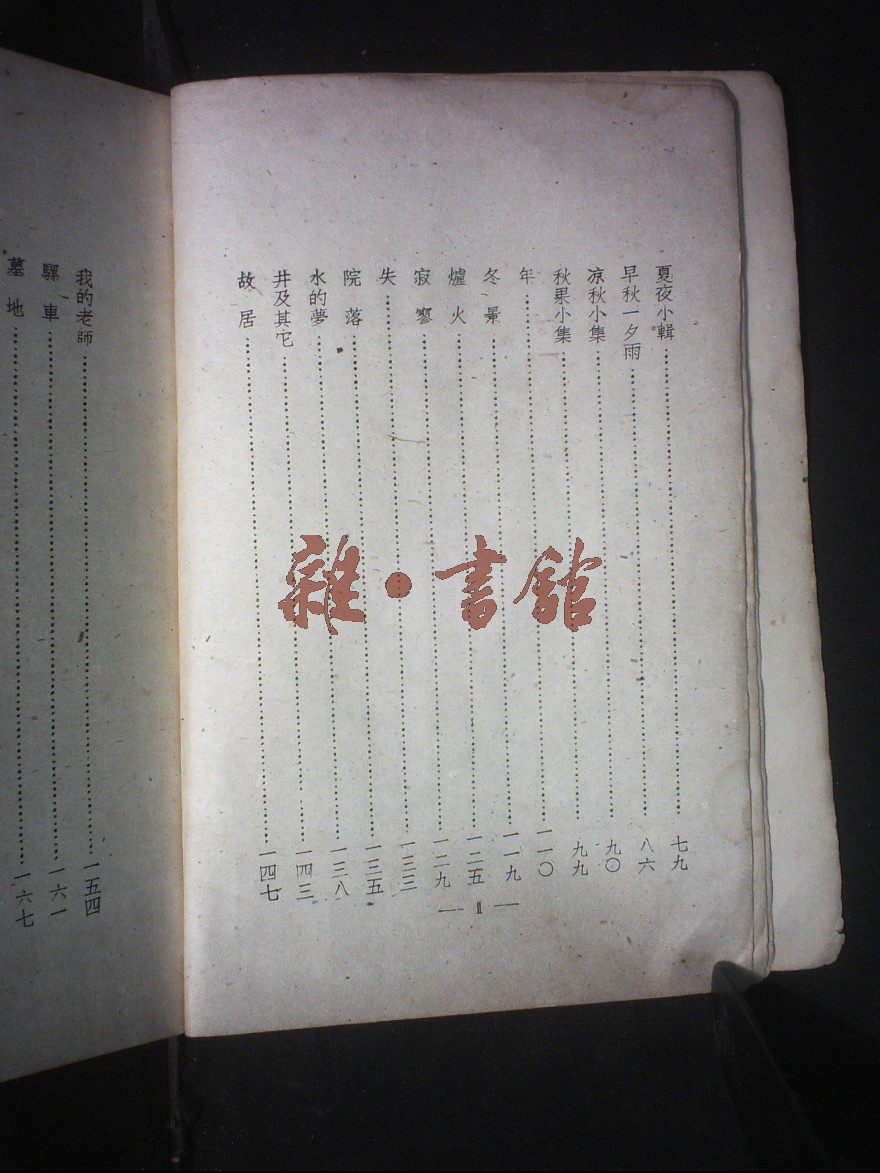 夏夜小輯……七九
早秋一夕雨……八六
凉秋小集……九〇
秋果小集……九九
年……一一〇
冬景……一一九
爐火……一二五
寂寥……一二九
失……一三三
院落……一三五
水的夢……一三八
井及其它……一四三
故居……一四七
— II —
我的老師……一五四
騾車……一六一
墓地……一六七
雜·書館